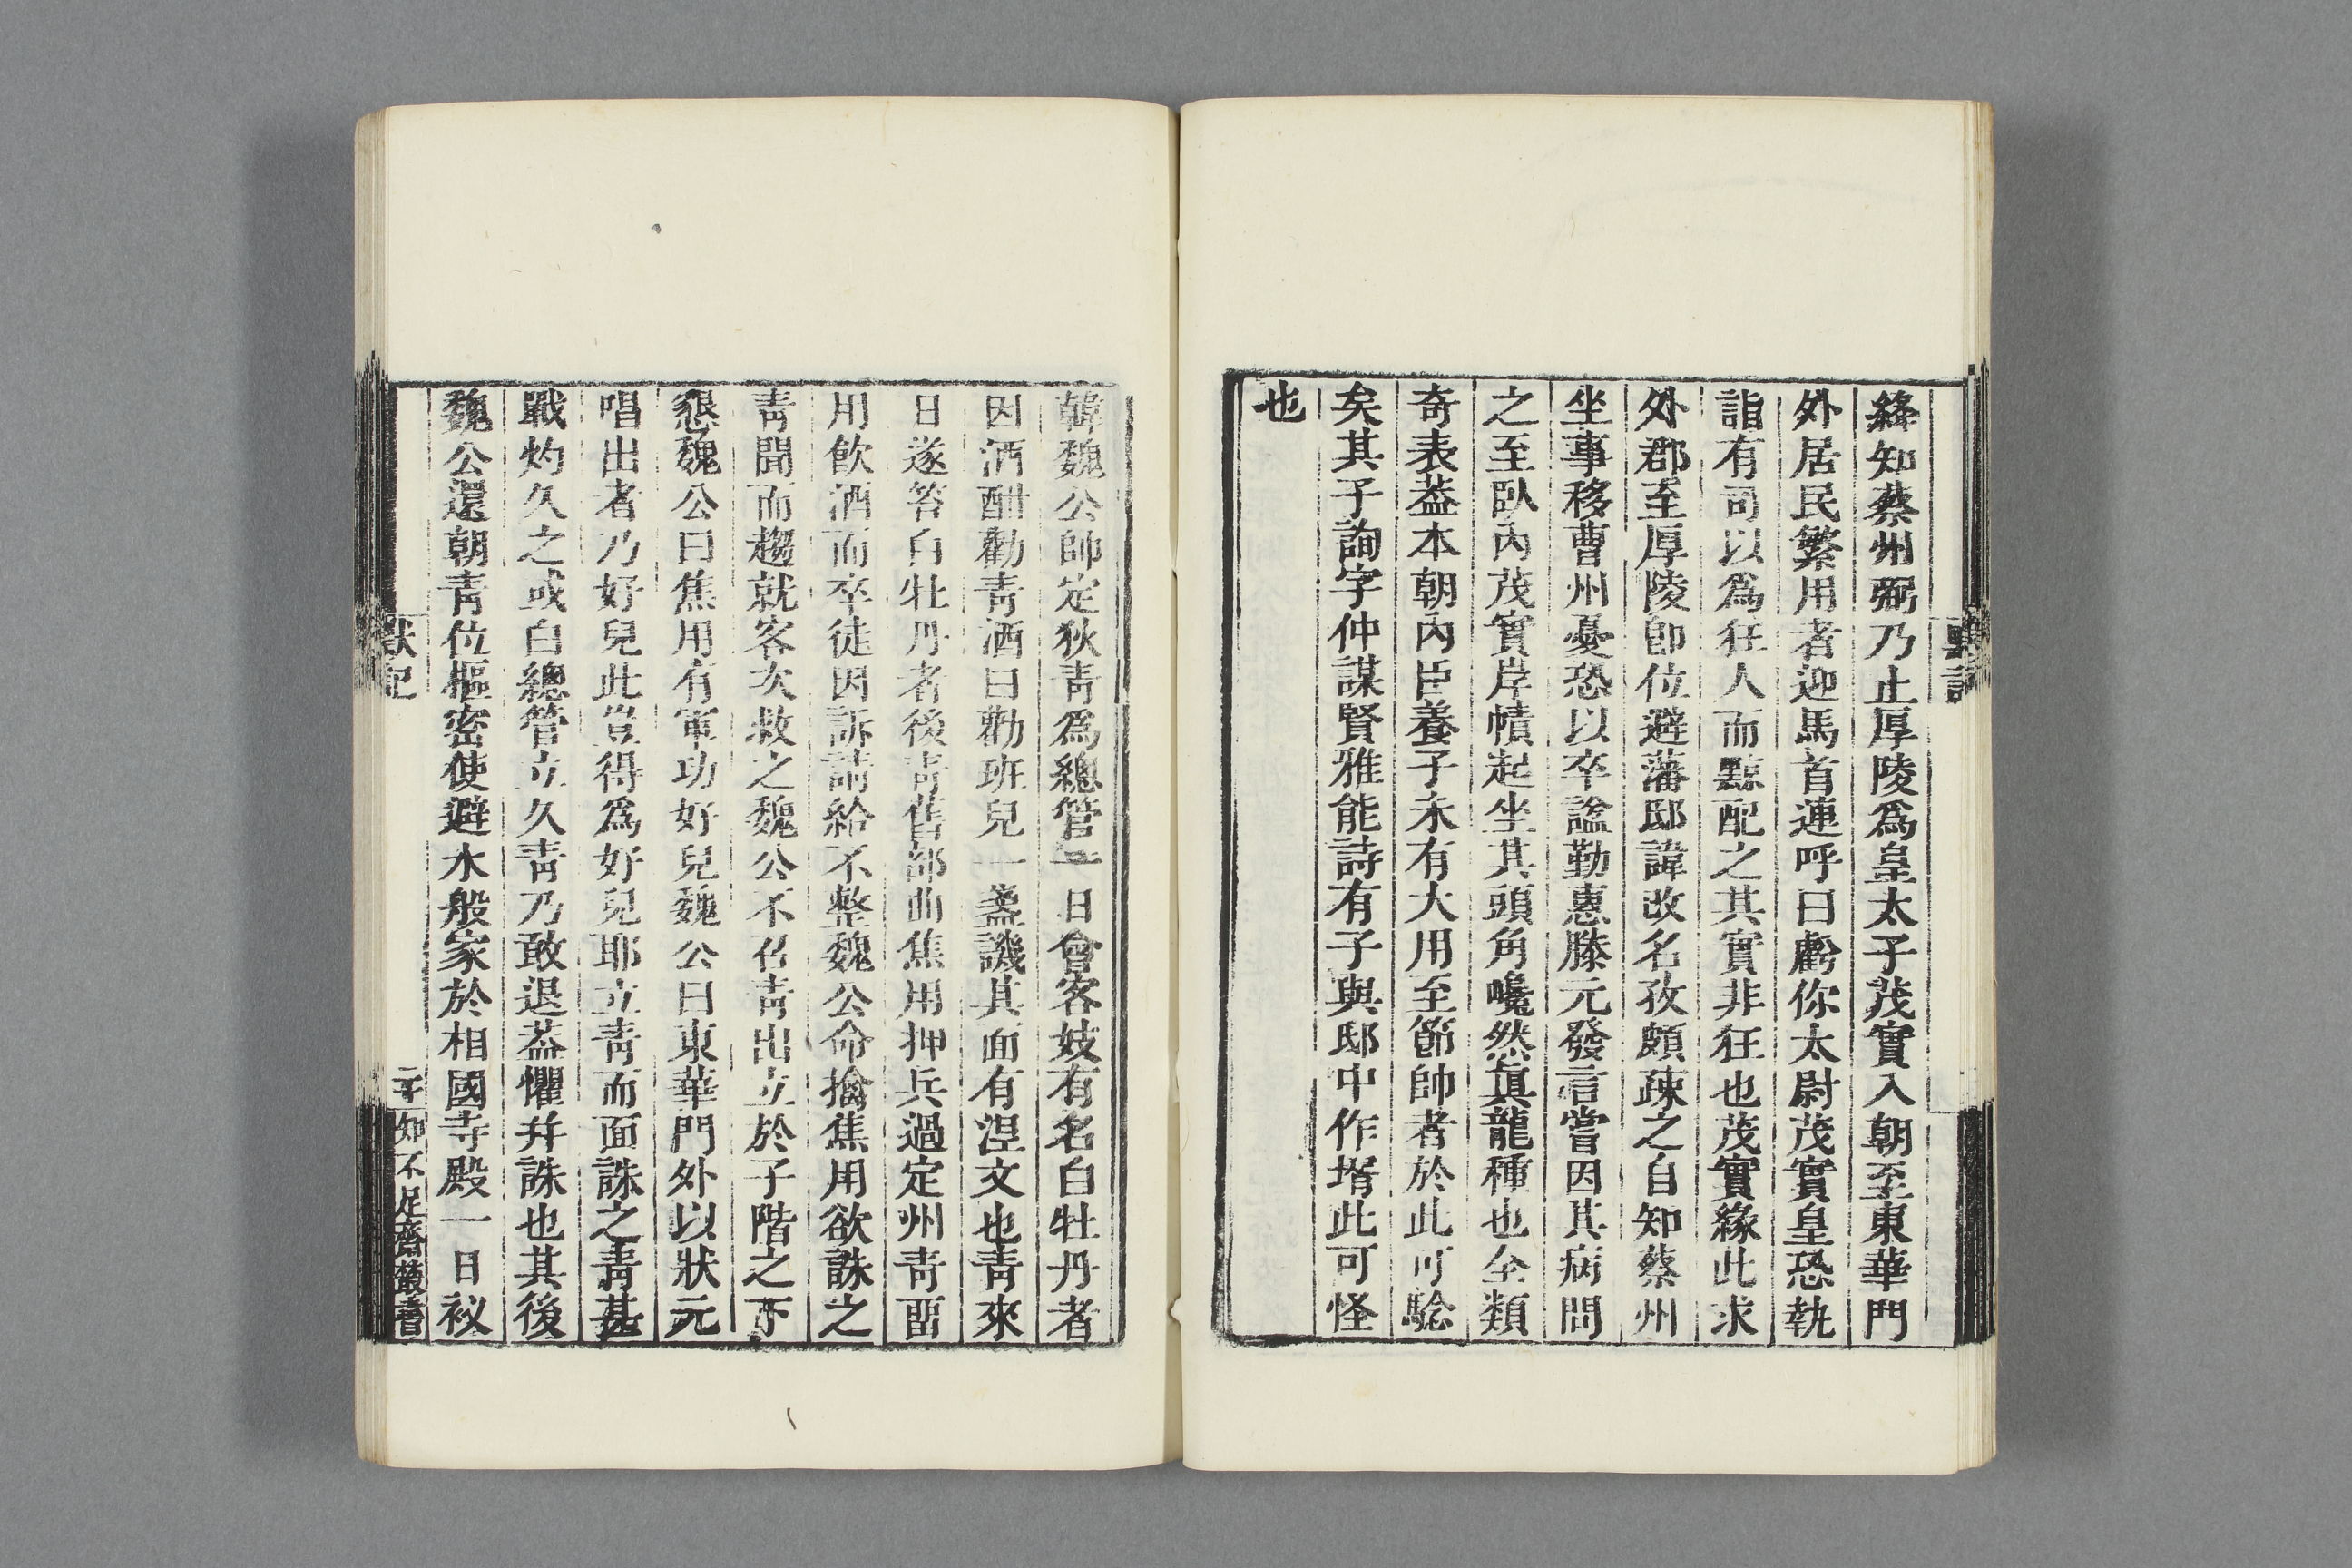 絳知蔡州弼乃止厚陵爲皇太子茂實入朝至東華門
外居民繁用者迎馬首連呼曰虧你太尉茂實皇恐執
詣有司以爲狂人而黥配之其實非狂也茂實緣此求
外郡至厚陵卽位避藩邸諱改名孜頗疎之自知蔡州
坐事移曹州憂恐以卒諡勤惠滕元發言嘗因其病問
之至臥內茂實岸幘起坐其頭角巉然眞龍種也全類
奇表葢本朝內臣養子未有大用至節帥者於此可驗
矣其子詢字仲謀賢雅能詩有子與邸中作壻此可怪
也
韓魏公帥定狄靑爲總管一日會客妓有名白牡丹者
因酒酣勸靑酒曰勸班兒一盞譏其面有湼文也靑來
日遂笞白牡丹者後靑舊部曲焦用押兵過定州靑畱
用飲酒而卒徒因訴請給不整魏公命擒焦用欲誅之
靑聞而趨就客次救之魏公不召靑出立於子階之下
懇魏公曰焦用有軍功好兒魏公曰東華門外以狀元
唱出者乃好兒此豈得爲好兒耶立靑而面誅之靑甚
戰灼久之或白總管立久靑乃敢退葢懼幷誅也其後
魏公還朝靑位樞密使避水般家於相國寺殿一日衩
默記
知不足齋叢書